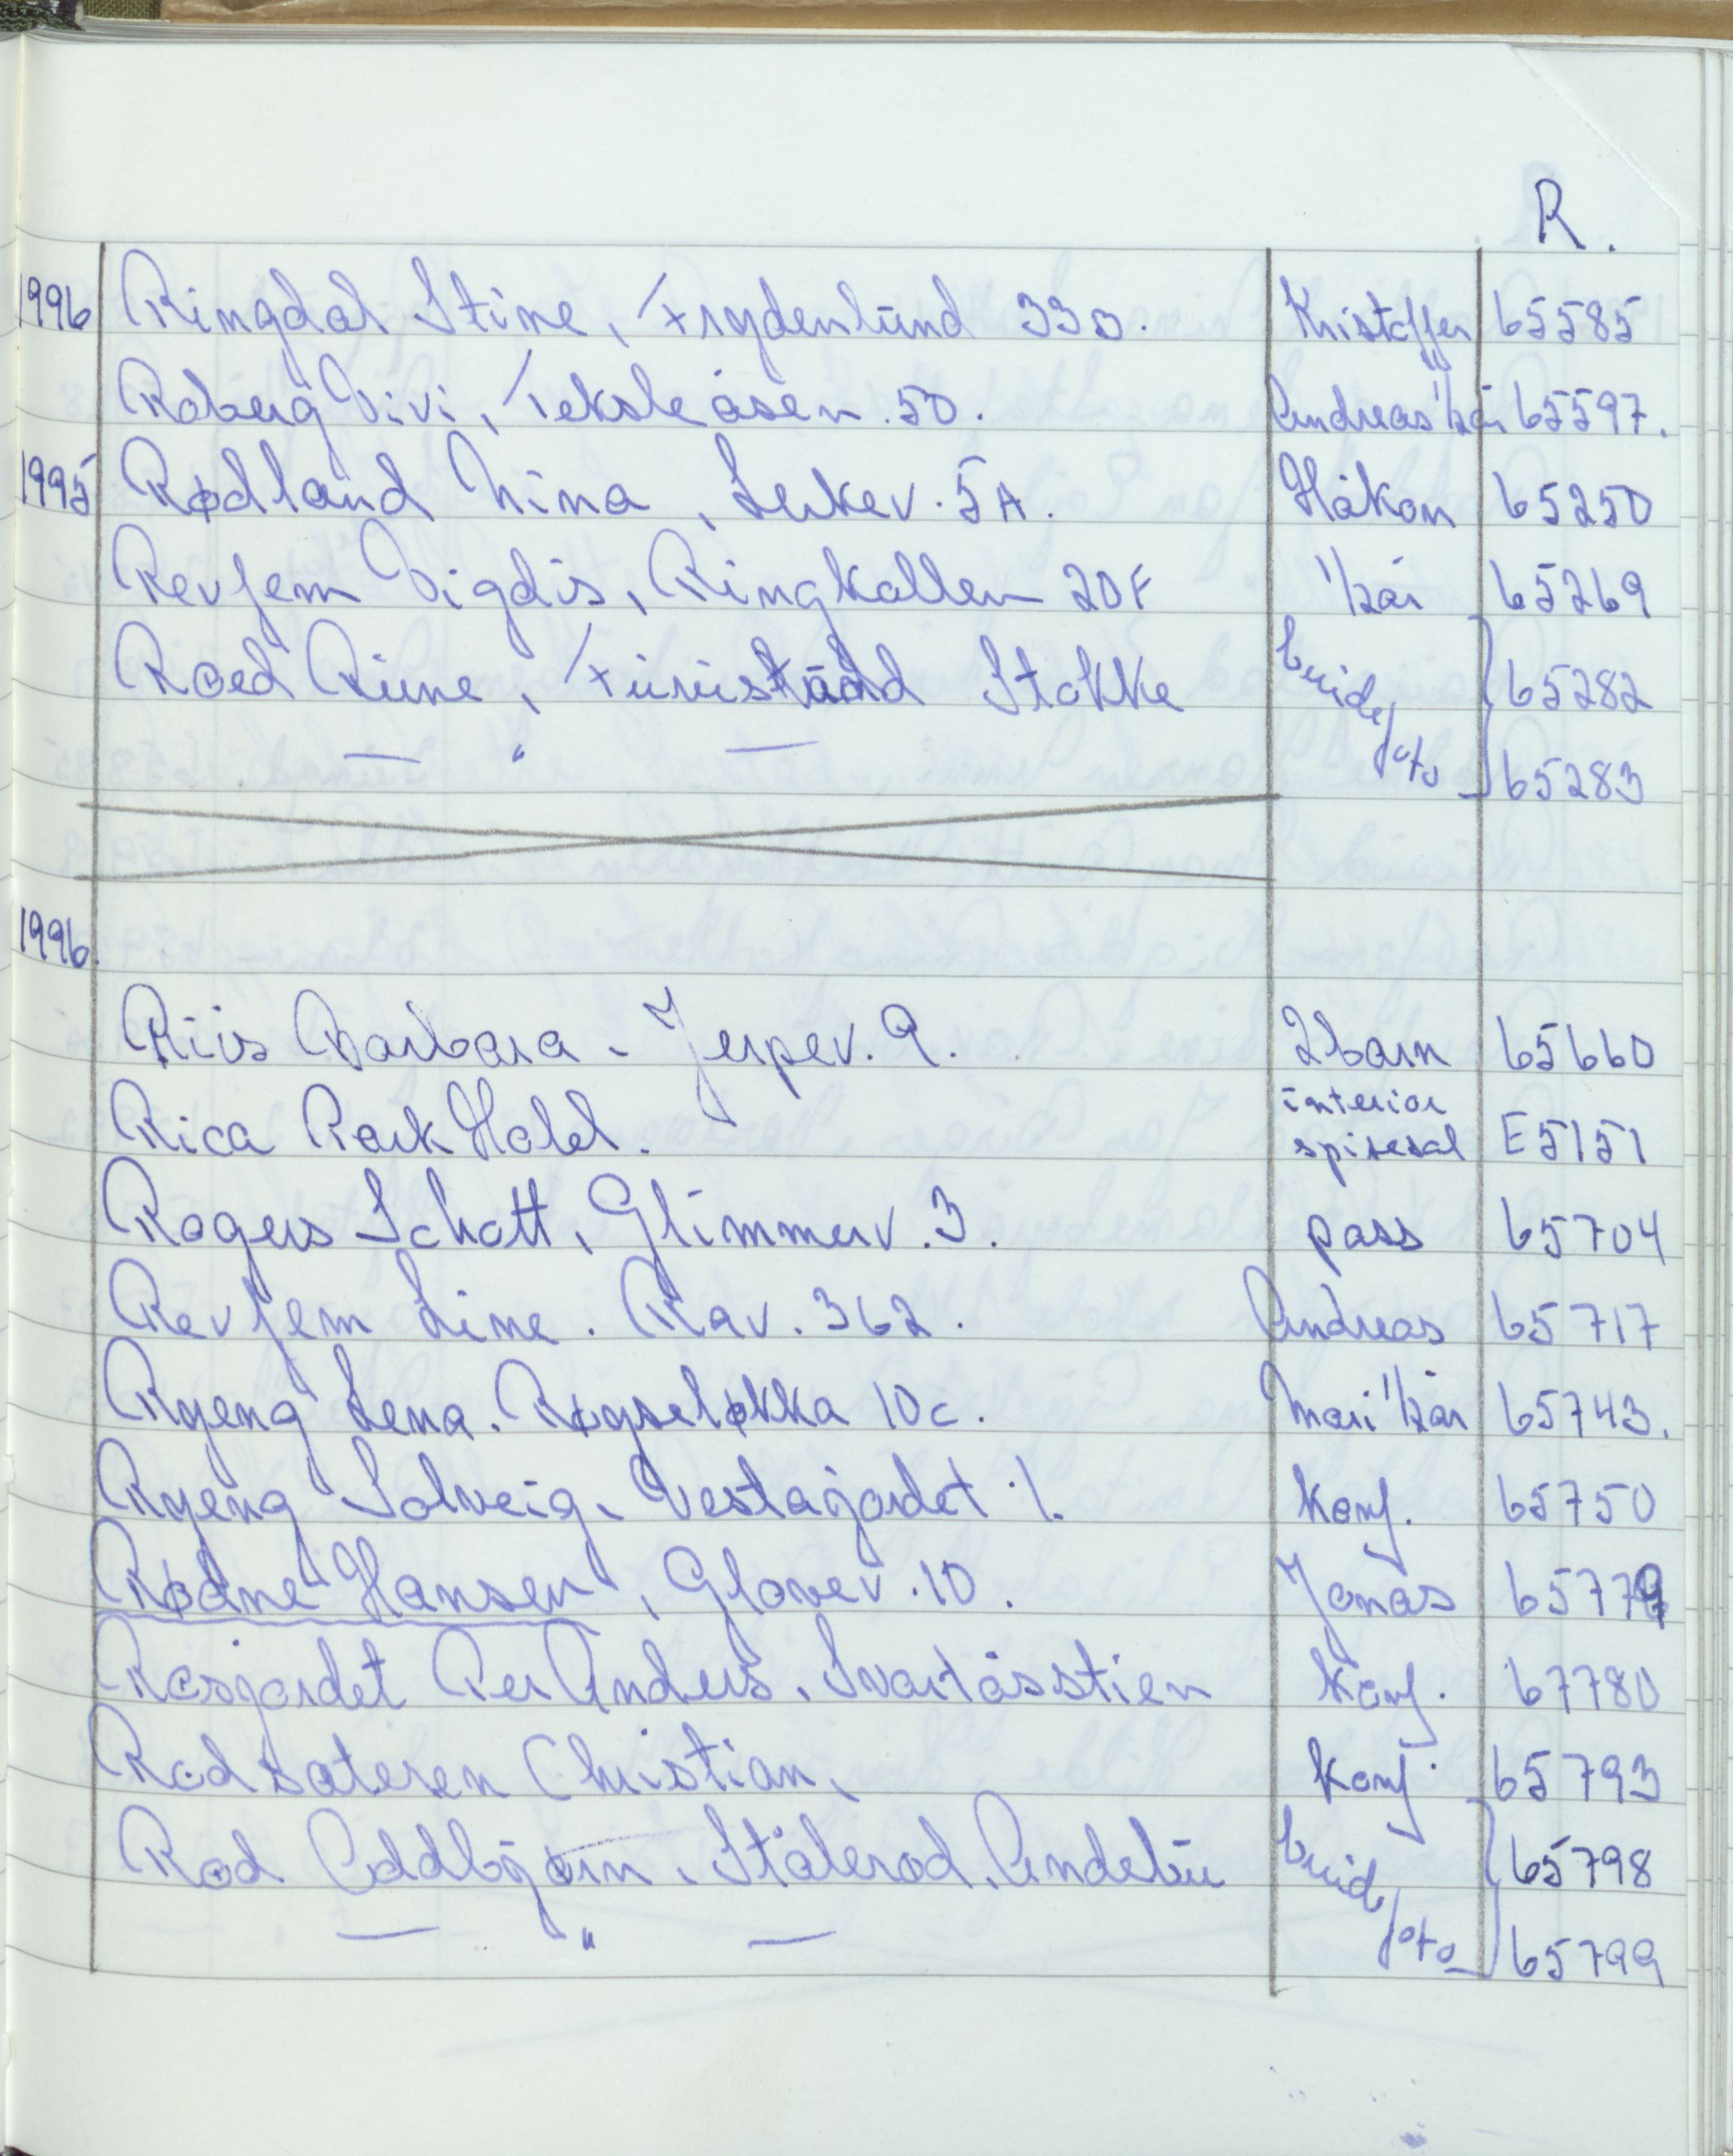 R.
1996 Ringdal Stine, Frydenlund 33D. Kristoffer 65585
Roberg Vivi, Teksleåsen 50. Andreas 1/2 år 65597.
1995 Rødland Nina, Lerkev. 5A. Håkon 65250
Revjem Vigdis, Ringkollen 20F 1/2 år 65269
Roed Rune, Furustrand Stokke brude 65282
— " — foto 65283
1996.
Riis Barbara - Jerpev. 9. 2 barn 65660
Rica Park Hotel. interiør spisesal E5151
Rogers Schott, Glimmerv. 3. pass 65704
Revjem Line. Rav. 362. Andreas 65717
Ryeng Lena. Røyseløkka 10c. Mari 1/2 år 65743.
Ryeng Solveig, Vestajordet 1. konf. 65750
Rødne Hansen, Glovev. 10. Jonas 65779
Rosjordet Per Anders, Svartåsstien konf. 67780
Rodsateren Christian, konf. 65793
Rød Oddbjørn, Stålerød, Andebu brude 65798
— " — foto 65799